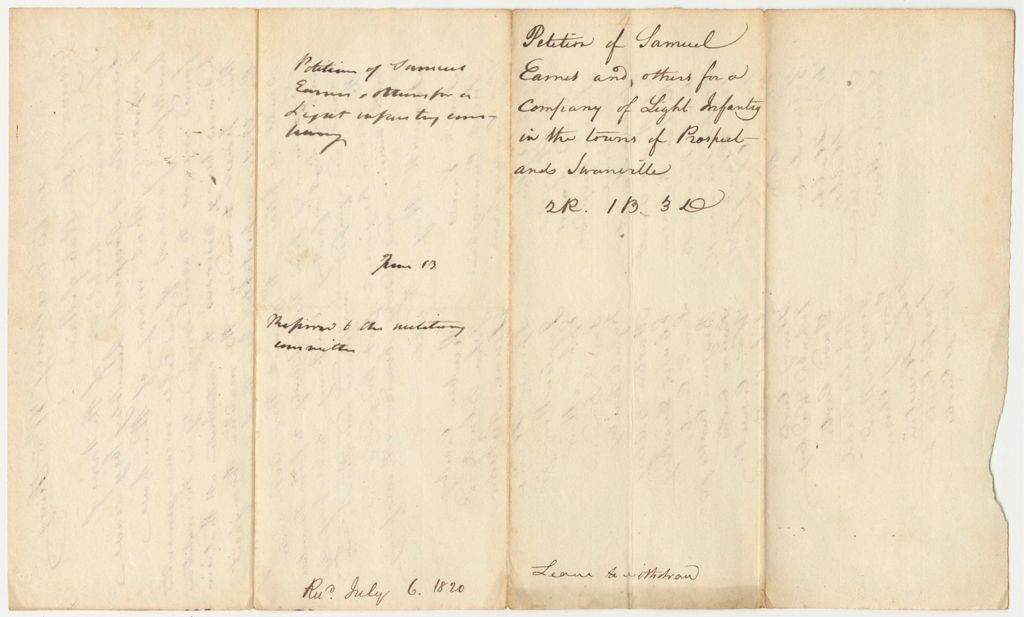 Petition of Samuel
Eames & others for a
Light infantry com-
pany
June 13
Referred to the military
committee
Recd. July 6. 1820
4
Petition of Samuel
Eames and others for a
Company of Light Infantry
in the towns of Prospect
and Swanville
2R. 1B. 3D
Leave to withdraw